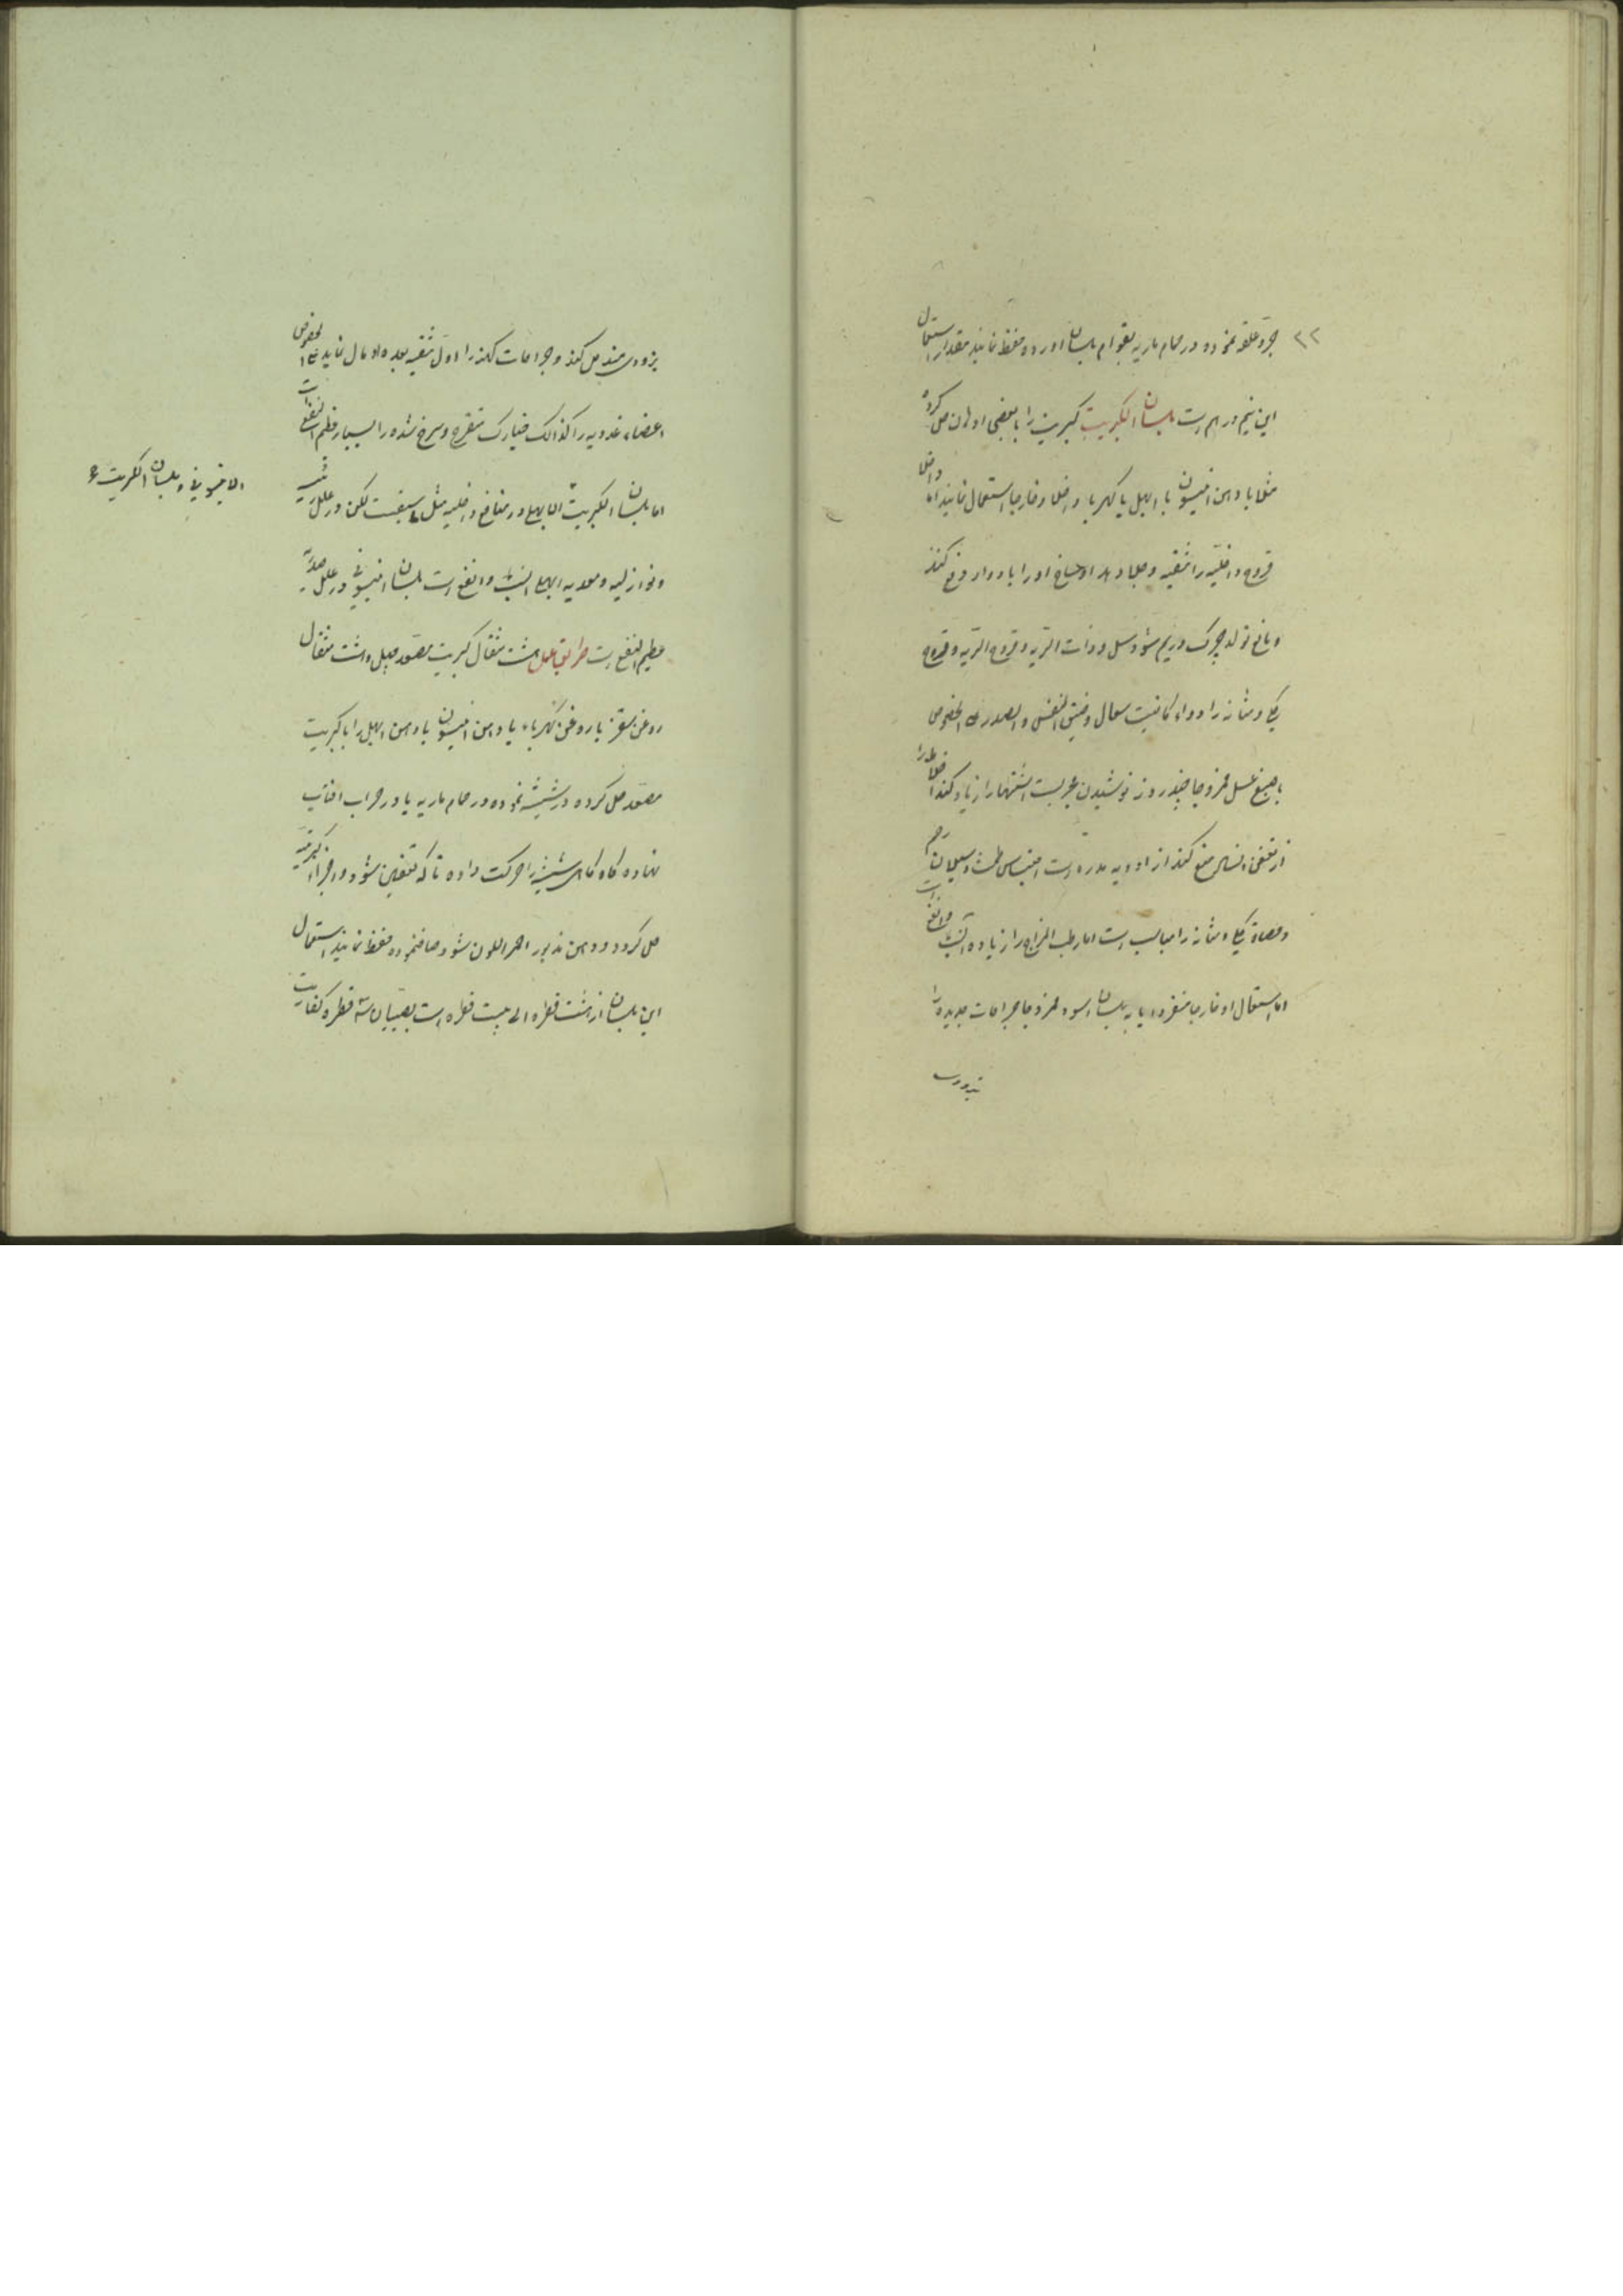 ۲۲
جرو علقه نموده در حمام ماریه بقوام بلسان اورده حفظ نمایند مقدار استعمال
این نیم درهم است بلسان الکبریت کبریت را با بعضی ادهان حل کرده
مثلا با دهن انیسون یا ابهل یا کهربا داخلا و خارجا استعمال نمایند اما داخلا
قروح داخلیه را تنقیه و جلا دهد اوساخ او را با ادرار دفع کند
و مانع تولد چرک و ریم شود سل و ذات الریه و قروح الریه و قروح
کلی و مثانه را دواء کافیست سعال و ضیق النفس و الصدر علی الخصوص
با صبغ عسل ممزوجا چند روز نوشیدن مجربست اشتها را زیاد کند اخلاط را
از تعفن و فساد منع کند از ادویه مدره است احتباس طمث و سیلان رحم
و حصاة کلی و مثانه را مناسب است اما رطب المزاج را زیاده انسب و انفع است
اما استعمال او خارجا منفردا یا به بلسان اسود ممزوجا جراحات جدیده را
بزودی
بزودی مندمل کند و جراحات کهنه را اول تنقیه بعده اندمال نماید علی الخصوص
اعضاء غددیه را کذالک خیارک متقرح و سرخ شده را بسیار عظیم النفع است
اما بلسان الکبریت الابهلی در منافع داخلیه مثل سابقست لکن در علل
و نوازلیه و معدیه ابهلی انسب و انفع است بلسان انیسونی در علل صدریه
عظیم النفع است طرایق عمل هشت مثقال کبریت مصعد چهل و هشت مثقال
روغن سقز یا روغن کهرباء یا دهن انیسون یا دهن ابهل را با کبریت
مصعد حل کرده در شیشه نموده در حمام ماریه یا در حراب افتاب
نهاده گاه گاهی شیشه را حرکت داده تا که متعفن شود و اجزاء کبریتیه
حل گردد و دهن مذبور احمر اللون شود صاف نموده حفظ نمایند استعمال
این بلسان از هشت قطره الی بیست قطره است بصبیان سه قطره کفایت
الانیسونی و بلسان الکبریت